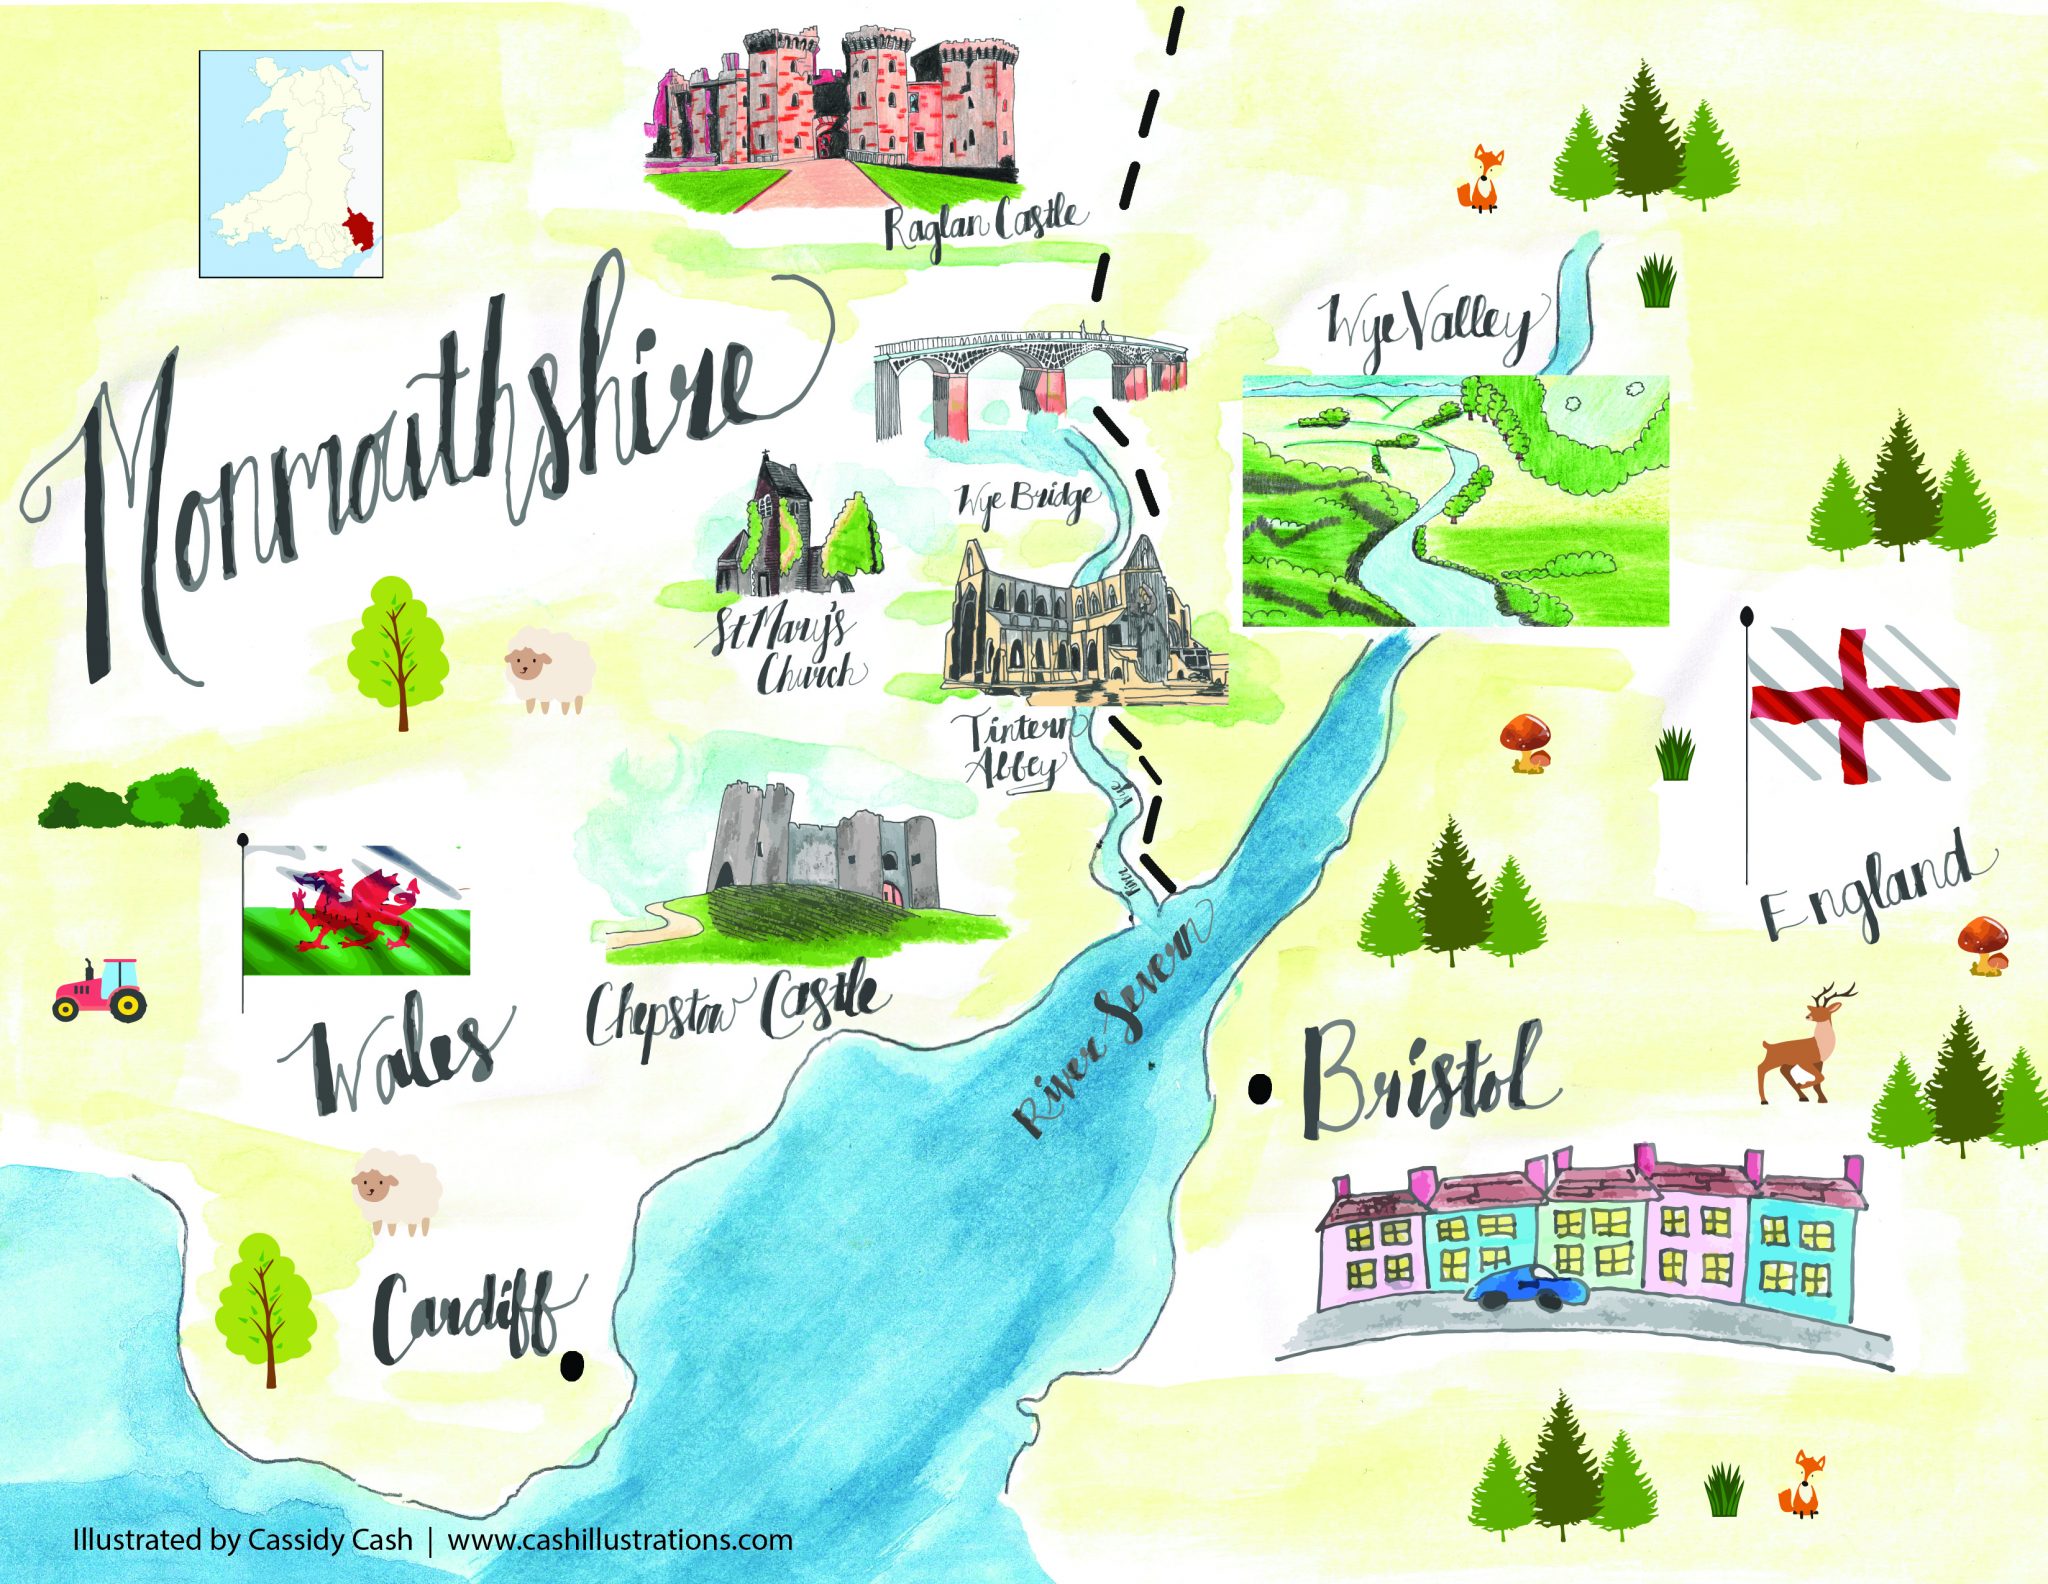 Raglan Castle
Monmouthshire
Wye Valley
Wye Bridge
St Mary's
Church
Tintern
Abbey
River Wye
England
Wales
Chepstow Castle
River Severn
Bristol
Cardiff
Illustrated by Cassidy Cash | www.cashillustrations.com